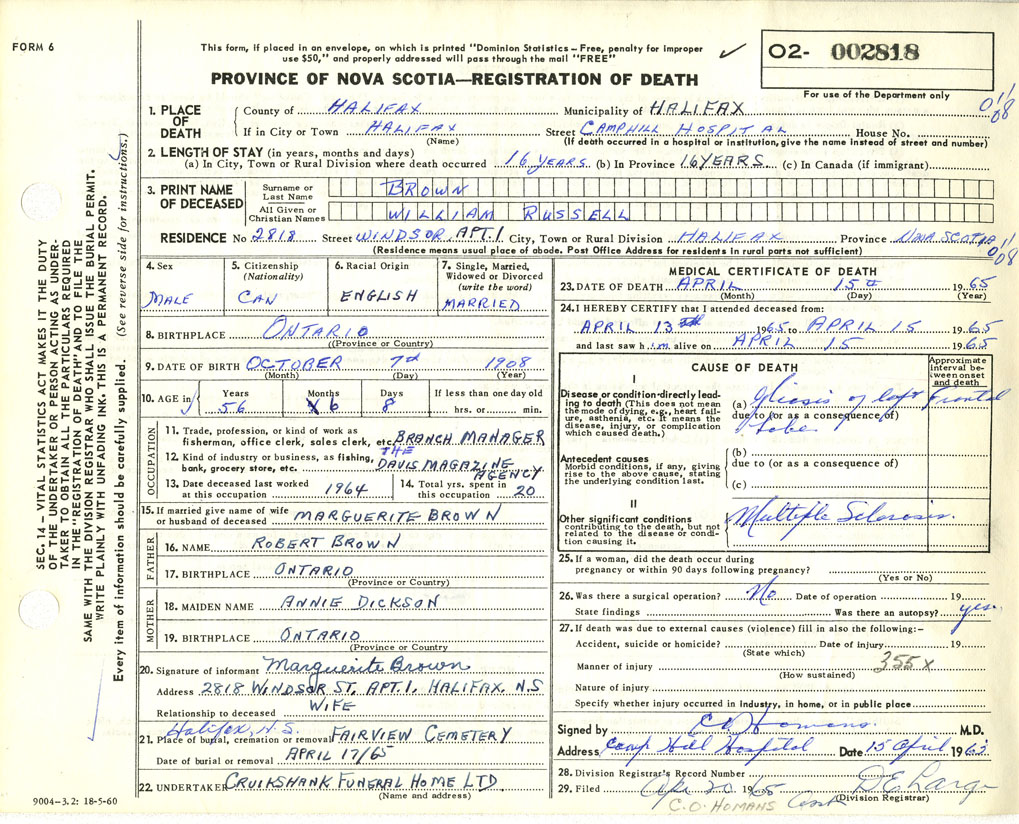 FORM 6
This form, if placed in an envelope, on which is printed "Dominion Statistics – Free, penalty for improper
use $50," and properly addressed will pass through the mail "FREE"
PROVINCE OF NOVA SCOTIA—REGISTRATION OF DEATH
O2- 002818
For use of the Department only
SEC. 14 — VITAL STATISTICS ACT MAKES IT THE DUTY
OF THE UNDERTAKER OR PERSON ACTING AS UNDER-
TAKER TO OBTAIN ALL THE PARTICULARS REQUIRED
IN THE "REGISTRATION OF DEATH" AND TO FILE THE
SAME WITH THE DIVISION REGISTRAR WHO SHALL ISSUE THE BURIAL PERMIT.
WRITE PLAINLY WITH UNFADING INK. THIS IS A PERMANENT RECORD.
Every item of Information should be carefully supplied. (See reverse side for instructions.)
1. PLACE OF DEATH
County of HALIFAX Municipality of HALIFAX
If in City or Town HALIFAX Street CAMPHILL HOSPITAL House No.
(Name) (If death occurred in a hospital or institution, give the name instead of street and number)
2. LENGTH OF STAY (in years, months and days)
(a) In City, Town or Rural Division where death occurred 16 YEARS (b) In Province 16 YEARS. (c) In Canada (if immigrant)
3. PRINT NAME OF DECEASED
Surname or Last Name BROWN
All Given or Christian Names WILLIAM RUSSELL
RESIDENCE No 2818 Street WINDSOR, APT. 1 City, Town or Rural Division HALIFAX Province NOVA SCOTIA
(Residence means usual place of abode. Post Office Address for residents in rural parts not sufficient)
4. Sex MALE
5. Citizenship (Nationality) CAN
6. Racial Origin ENGLISH
7. Single, Married, Widowed or Divorced (write the word) MARRIED
8. BIRTHPLACE ONTARIO
(Province or Country)
9. DATE OF BIRTH OCTOBER 7th 1908
(Month) (Day) (Year)
10. AGE in Years 56 Months 6 Days 8 If less than one day old hrs. or min.
OCCUPATION
11. Trade, profession, or kind of work as
fisherman, office clerk, sales clerk, etc. BRANCH MANAGER
12. Kind of industry or business, as fishing,
bank, grocery store, etc. THE DAVIS MAGAZINE AGENCY
13. Date deceased last worked at this occupation 1964
14. Total yrs. spent in this occupation 20
15. If married give name of wife or husband of deceased MARGUERITE BROWN
FATHER
16. NAME ROBERT BROWN
17. BIRTHPLACE ONTARIO
(Province or Country)
MOTHER
18. MAIDEN NAME ANNIE DICKSON
19. BIRTHPLACE ONTARIO
(Province or Country)
20. Signature of informant Marguerite Brown
Address 2818 WINDSOR ST. APT. 1. HALIFAX. N.S
Relationship to deceased WIFE
Halifax, N.S.
21. Place of burial, cremation or removal FAIRVIEW CEMETERY
Date of burial or removal APRIL 17/65
22. UNDERTAKER CRUIKSHANK FUNERAL HOME LTD
(Name and address)
9004-3.2: 18-5-60
MEDICAL CERTIFICATE OF DEATH
23. DATE OF DEATH APRIL 15th 1965
(Month) (Day) (Year)
24. I HEREBY CERTIFY that I attended deceased from:
APRIL 13th 1965 to APRIL 15 1965
and last saw him alive on APRIL 15 1965
CAUSE OF DEATH
Approximate Interval between onset and death
I
Disease or condition directly leading to death (This does not mean the mode of dying, e.g., heart failure, asthenia, etc. It means the disease, injury, or complication which caused death.)
(a) Gliosis of left Frontal
due to (or as a consequence of)
lobe
Antecedent causes
Morbid conditions, if any, giving rise to the above cause, stating the underlying condition last.
(b)
due to (or as a consequence of)
(c)
II
Other significant conditions contributing to the death, but not related to the disease or condition causing it.
Multiple Sclerosis.
25. If a woman, did the death occur during
pregnancy or within 90 days following pregnancy?
(Yes or No)
26. Was there a surgical operation? No Date of operation 19
State findings Was there an autopsy? yes.
27. If death was due to external causes (violence) fill in also the following:–
Accident, suicide or homicide? Date of injury 19
(State which)
Manner of injury 355X
(How sustained)
Nature of injury
Specify whether injury occurred in industry, in home, or in public place
Signed by C.O. Homans. M.D.
Address Camp Hill Hospital Date 15 April 1965
28. Division Registrar's Record Number
29. Filed Apr 20 1965
(Division Registrar)
C.O. HOMANS